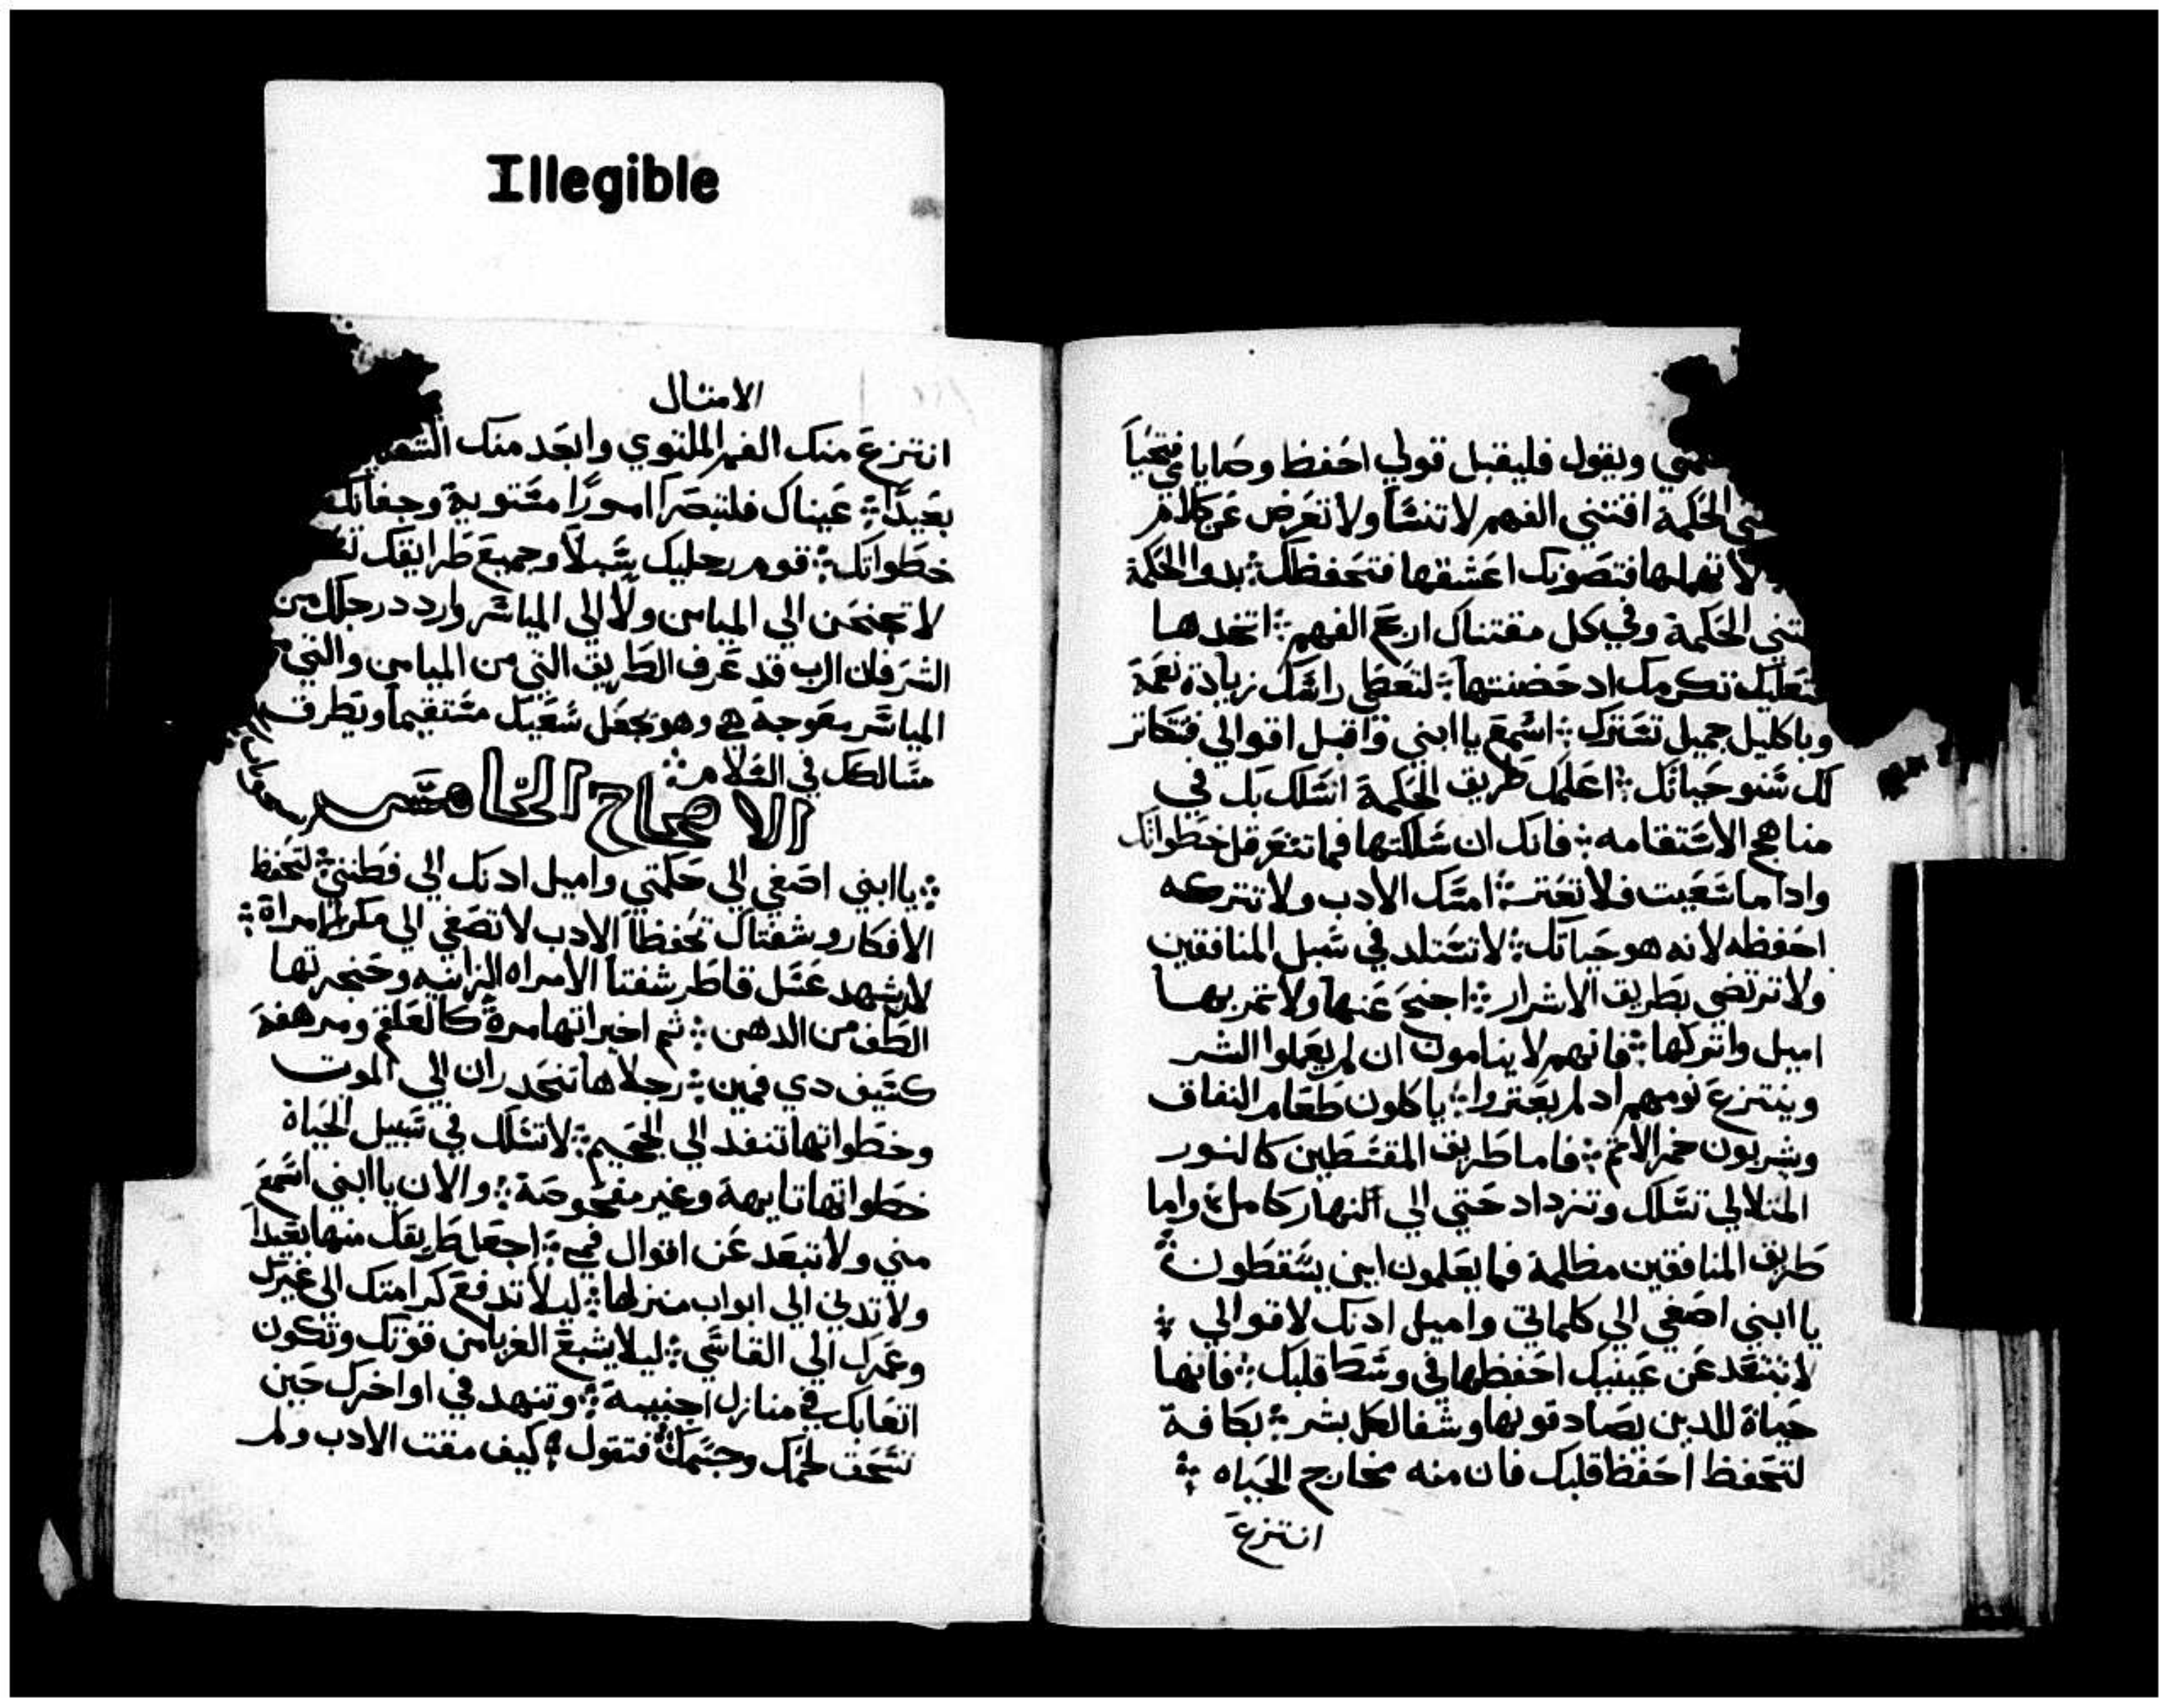 Illegible
ويقول فليقبل قولي احفظ وصاياي فتحيا
الحكمة اقتني الفهم لا تنسا ولا تعرض عن كلام
لا تهملها فتصونك اعشقها فتحفظك ⁘ بدو الحكمة
الحكمة وفي كل مقتناك ارع الفهم ⁘ اتخدها
تكرمك اد حضنتها ⁘ لتعطي راسك زيادة نعمة
وباكليل جميل تسترك ⁘ اسمع يا ابني واقبل اقوالي فتكاتر
لك سنو حياتك ⁘ اعلمك طريق الحكمة اسلك بك في
مناهج الاستقامه ⁘ فانك ان سلكتها فما تتعرقل خطواتك
وادا ما سعيت فلا تعتر ⁘ امسك الادب ولا تتركه
احفظه لانه هو حياتك ⁘ لا تستلد في سبل المنافقين
ولا ترتضي بطريق الاشرار ⁘ اجنح عنها ولا تمر بها
اميل واتركها ⁘ فانهم لا ينامون ان لم يعملوا الشر
وينتزع نومهم اد لم يعتروا ⁘ ياكلون طعام النفاق
وشربون خمر الاتم ⁘ فاما طريق المقسطين كالنور
المتلالي تسلك وتزداد حتي الي النهار كامله واما
طريق المنافقين مظلمة فما يعلمون اين يسقطون ⁘
يا ابني اصغي الي كلماتي واميل ادنك لاقوالي ⁘
لا تبتعد عن عينيك احفظها في وسط قلبك ⁘ فانها
حياة للدين يصادفونها وشفا لكل بشر ⁘ بكافة
لتحفظ احفظ قلبك فان منه مخارج الحياه ⁘
انتزع
الامتال
انتزع منك الفم الملتوي وابعد منك
بعيدا ⁘ عيناك فلتبصرا امورا مستوية وجفانك
خطواتك ⁘ قوم رجليك سبلا وجميع طرايقك
لا تجنحن الي الميامن ولا الي المياسر واردد رجلك من
الشر فان الرب قد عرف الطريق التي من الميامن والتي
المياسر معوجة هي وهو يجعل سعيك مستقيما ويطرق
مسالكك في السلام ⁘
الاصحاح الخامس
⁘ يا ابني اصغي الي حكمتي واميل ادنك الي فطنتي ⁘ لتحفظ
الافكار وشفتاك تحفظا الادب لا تصغي الي مكر امراة ⁘
لان شهد عسل قاطر شفتا الامراه الزانيه وحنجرتها
الطف من الدهن ⁘ تم اخيراتها مرة كالعلقم ومرهفة
كسيف دي فمين ⁘ رجلاها تنحدران الي الموت
وخطواتها تنفد الي الجحيم ⁘ لا تسلك في سبيل الحياة
خطواتها تايهة وغير مفحوصة ⁘ والان يا ابني اسمع
مني ولا تبعد عن اقوال فمي ⁘ اجعل طريقك منها بعيدا
ولا تدني الي ابواب منزلها ⁘ ليلا تدفع كرامتك الي غيرك
وعمرك الي القاسي ⁘ ليلا يشبع الغربا من قوتك وتكون
اتعابك في منازل اجنبية ⁘ وتنهد في اواخرك حين
تسحق لحمك وجسمك فتقول ⁘ كيف مقت الادب ولم